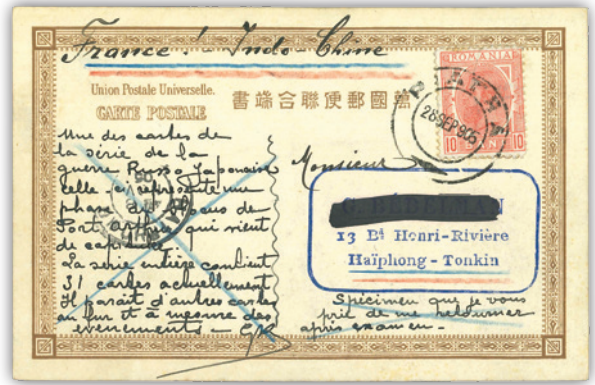 France! Indo-Chine
Union Postale Universelle.
CARTE POSTALE
書端合聯便郵國萬
ROMANIA
10 10
28 SEP 905
Une des cartes de
la série de la
guerre Russo Japonaise
celle-ci représente une
phase du de
Port Arthur qui vient
de
La série entière contient
31 cartes actuellement
Il paraît d'autres cartes
au fur et à mesure des
évenements - GR
Monsieur
13 Bd Henri-Rivière
Haïphong - Tonkin
Spécimen que je vous
prie de me retourner
après examen -